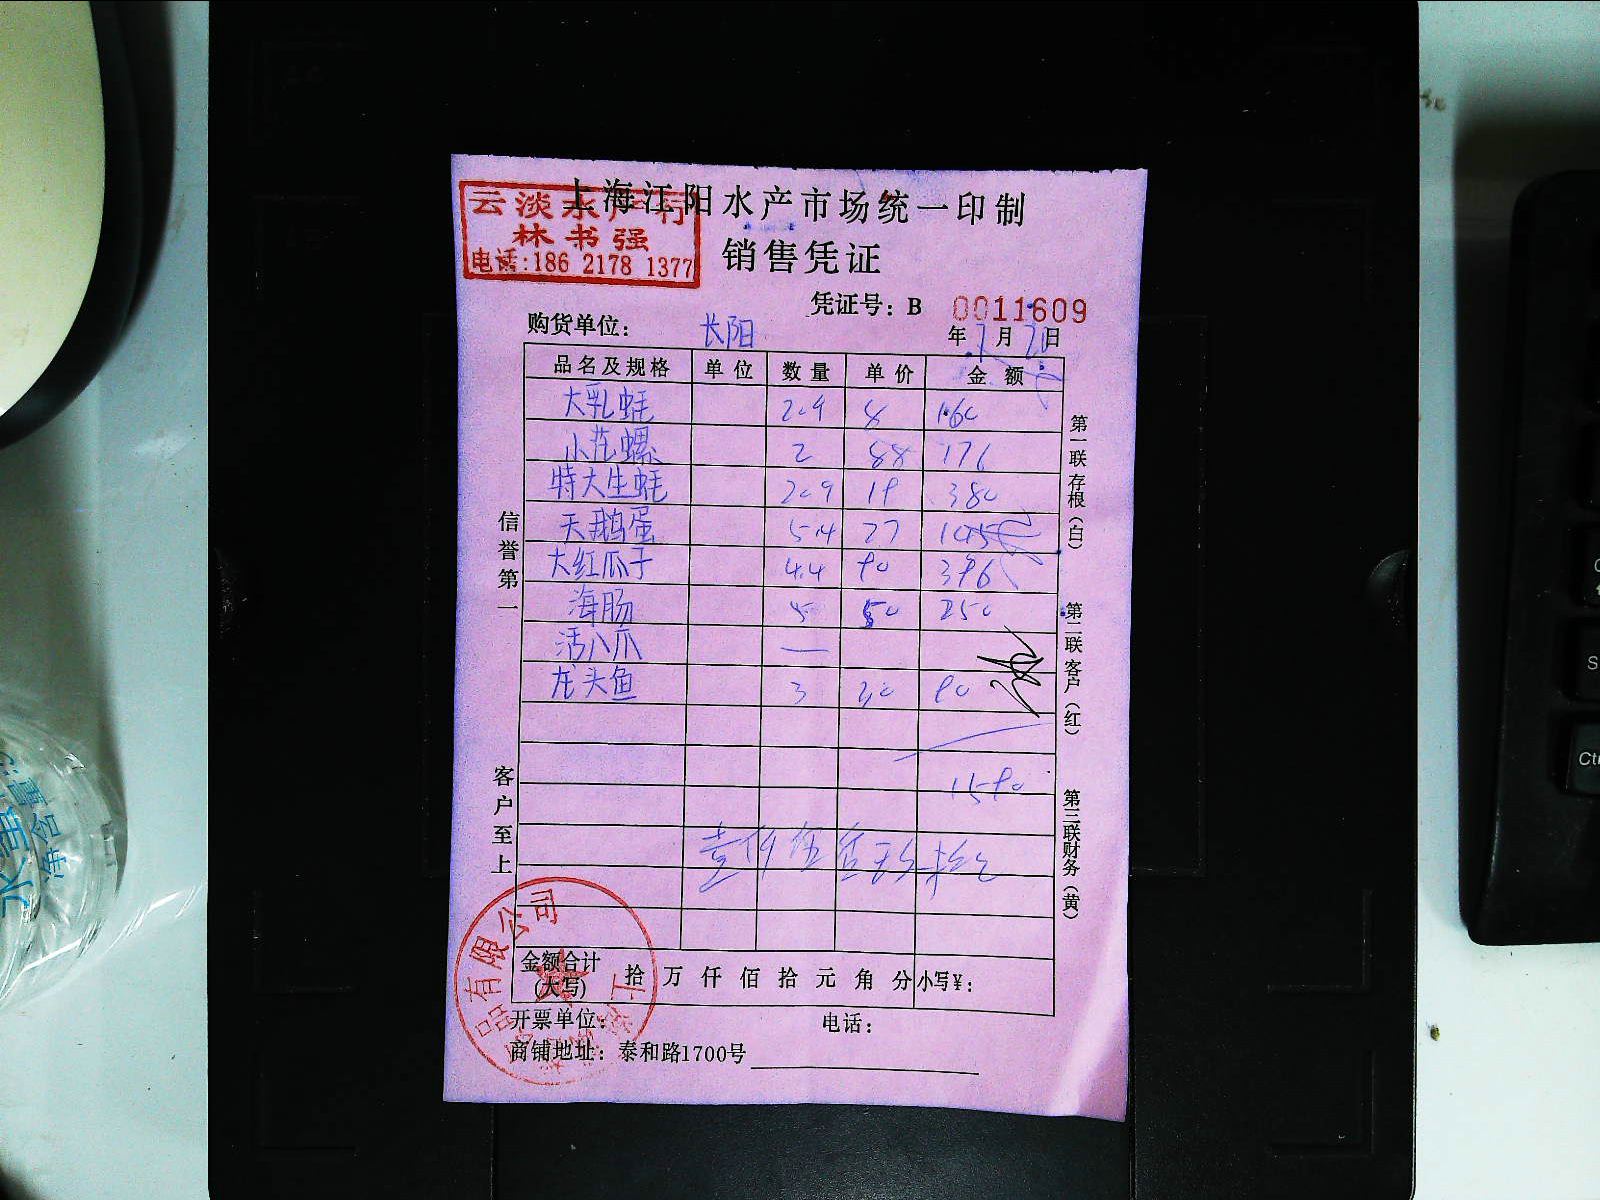 上海江阳水产市场统一印制
云淡水产行
林书强
电话:186 2178 1377
销售凭证
凭证号:B 0011609
购货单位: 长阳
年 7月 20日
品名及规格 单位 数量 单价 金额
大乳蚝 20.9 8 160
小花螺 2 88 176
特大生蚝 20.9 19 380
天鹅蛋 5.4 27 145
大红瓜子 4.4 90 396
海肠 5 50 250
活八爪 —
龙头鱼 3 30 90
1590
壹仟伍
金额合计
(大写) 拾 万 仟 佰 拾 元 角 分 小写¥:
开票单位: 电话:
商铺地址:泰和路1700号
信誉第一
客户至上
第一联存根(白)
第二联客户(红)
第三联财务(黄)
品有限公司
水
净含量
Ctrl